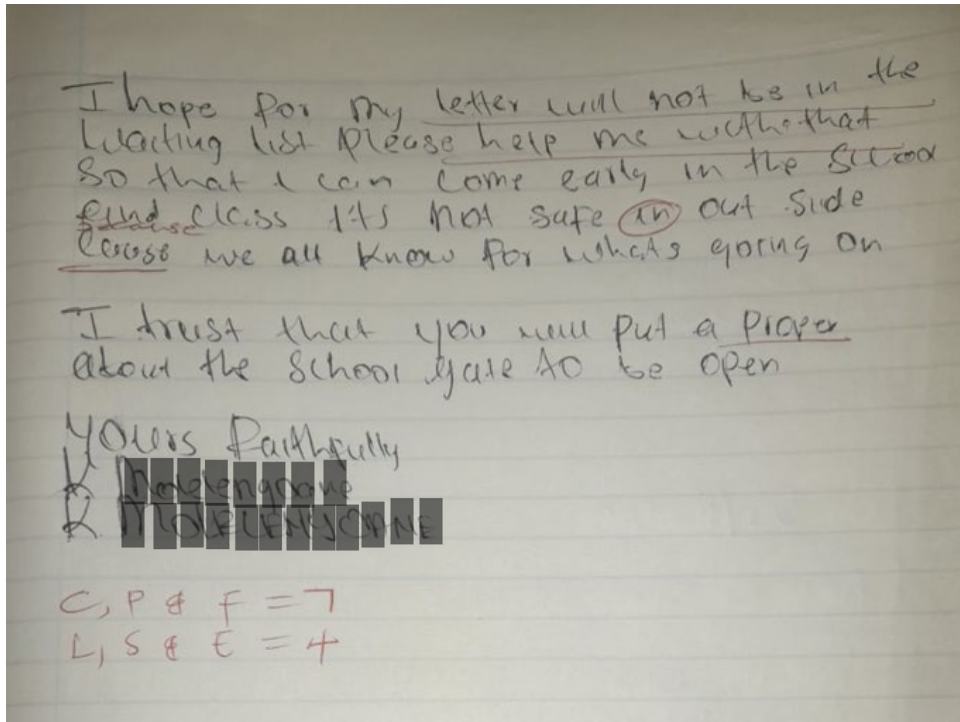 I hope for my letter will not be in the
waiting list please help me withe that
So that I can come early in the School
because
Class it's not safe in out side
Couse we all know for whats going on
I trust that you will put a proper
about the School gate to be open
Yours Faithfully
K
K
C, P & F = 7
L, S & E = 4